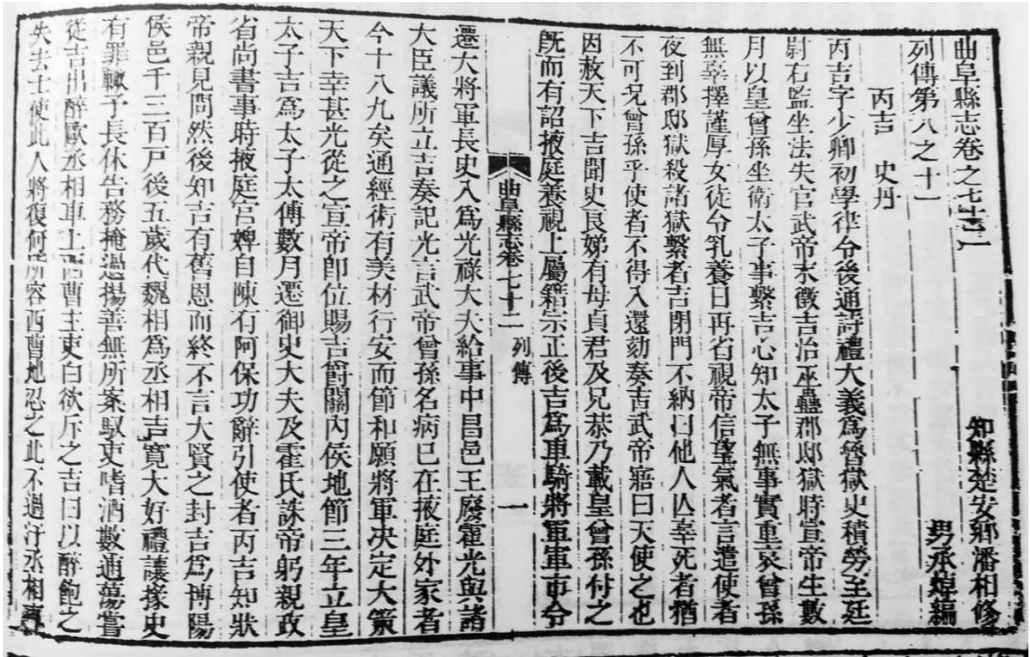 曲阜縣志卷之七十二
知縣楚安鄉潘相修
列傳第八之十一
男承焯編
丙吉　史丹
丙吉字少卿初學律令後通詩禮大義爲魯獄史積勞至廷
尉右監坐法失官武帝末徵吉治巫蠱郡邸獄時宣帝生數
月以皇曾孫坐衛太子事繫吉心知太子無事實重哀曾孫
無辜擇謹厚女徒令乳養日再省視帝信望氣者言遣使者
夜到郡邸獄殺諸獄繫者吉閉門不納曰他人亾辜死者猶
不可況曾孫乎使者不得入還劾奏吉武帝寤曰天使之也
因赦天下吉聞史良娣有母貞君及兄恭乃載皇曾孫付之
旣而有詔掖庭養視上屬籍宗正後吉爲車騎將軍軍市令
曲阜縣志卷七十二　列傳　一
遷大將軍長史入爲光祿大夫給事中昌邑王廢霍光與諸
大臣議所立吉奏記光言武帝曾孫名病已在掖庭外家者
今十八九矣通經術有美材行安而節和願將軍决定大策
天下幸甚光從之宣帝卽位賜吉爵關內侯地節三年立皇
太子吉爲太子太傅數月遷御史大夫及霍氏誅帝躬親政
省尚書事時掖庭宮婢自陳有阿保功辭引使者丙吉知狀
帝親見問然後知吉有舊恩而終不言大賢之封吉爲博陽
侯邑千三百戸後五歲代魏相爲丞相吉寬大好禮讓掾史
有罪輙予長休告務掩過揚善無所案馭吏嗜酒數逋蕩嘗
從吉出醉歐丞相車上西曹主吏白欲斥之吉曰以醉飽之
失去士使此人將復何所容西曹地忍之此不過汙丞相車